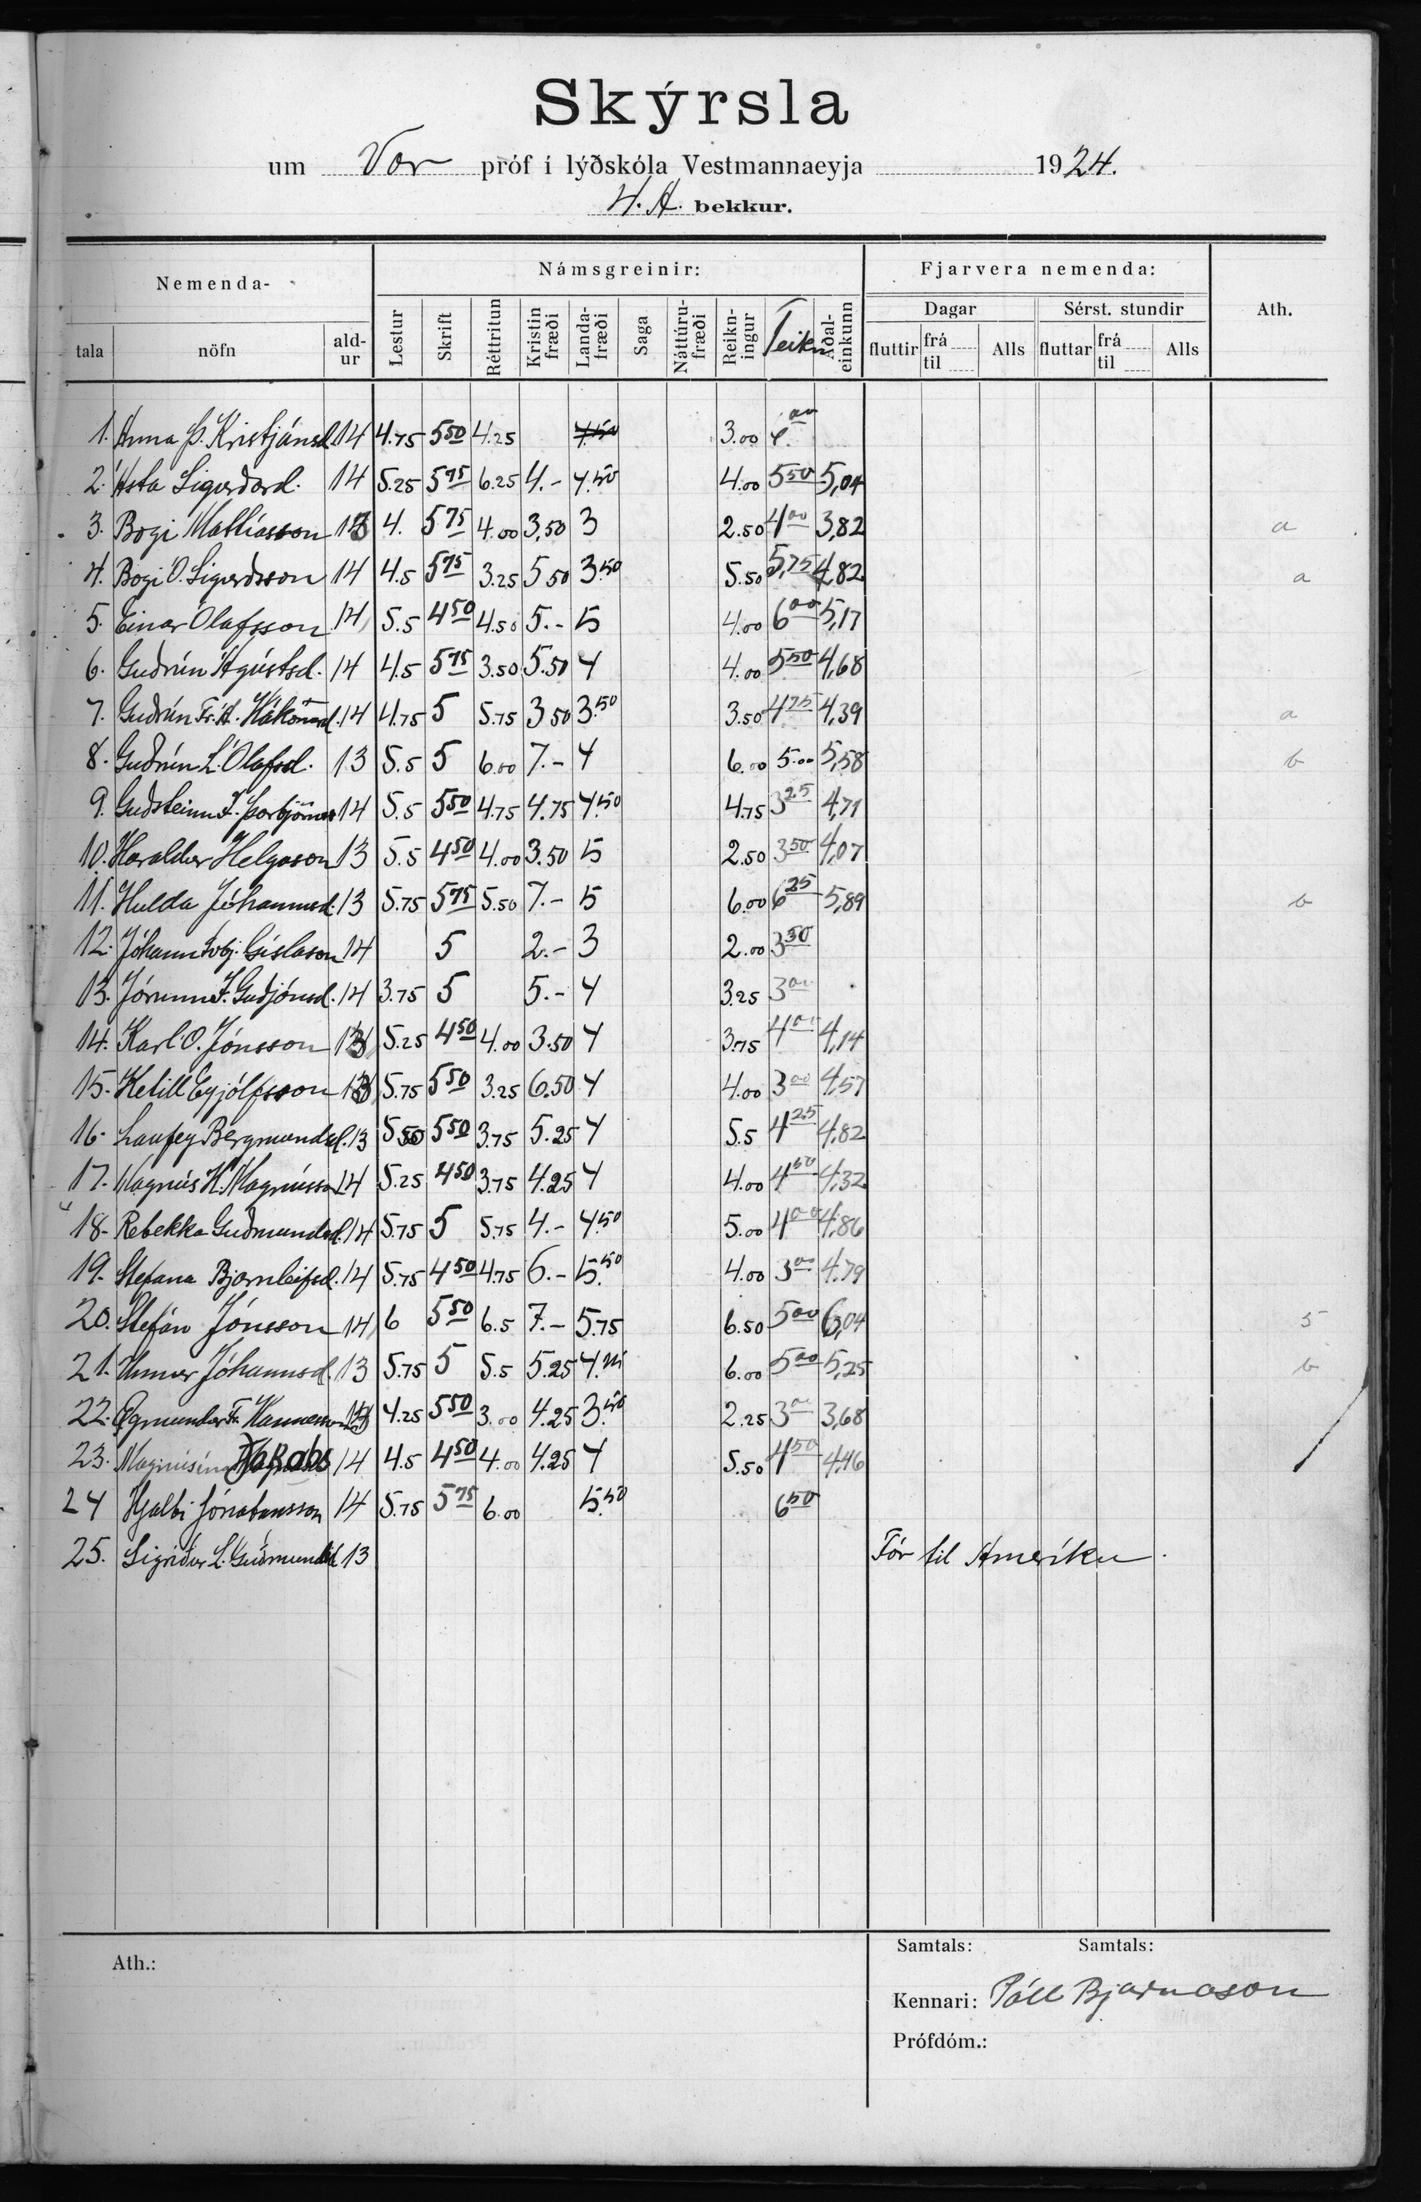 Skýrsla
um Vor próf í lýðskóla Vestmannaeyja 1924.
4. A. bekkur.
Nemenda- Námsgreinir: Fjarvera nemenda: Ath.
Dagar Sérst. stundir
tala nöfn ald-ur Lestur Skrift Réttritun Kristin fræði Landa-fræði Saga Náttúru-fræði Reikn-ingur Teikn Aðal-einkunn fluttir frá til Alls fluttar frá til Alls
1. Anna Þ. Kristjánsd. 14 4.75 5 50 4.25 3.00 4.00
2. Ásta Sigurðard. 14 5.25 5 75 6.25 4.- 4.50 4.00 5 50 5,04
3. Bogi Mattíasson 13 4. 5 75 4.00 3,50 3 2.50 4 00 3,82 a
4. Bogi O. Sigurðsson 14 4.5 5 75 3.25 5 50 3.50 5.50 5,75 4,82 a
5. Einar Ólafsson 14 5.5 4 50 4.50 5.- 5 4.00 6 00 5,17
6. Guðrún Ágústsd. 14 4.5 5 75 3.50 5.50 4 4.00 5 50 4,68
7. Guðrún Fr. Á. Hákonard. 14 4.75 5 5.75 3 50 3.50 3.50 4 75 4,39 a
8. Guðrún L. Ólafsd. 13 5.5 5 6.00 7.- 4 6.00 5.00 5,58 b
9. Guðsteinn I. Þorbjörnss 14 5.5 5 50 4.75 4.75 4.50 4.75 3 25 4,71
10. Haraldur Helgason 13 5.5 4 50 4.00 3.50 5 2.50 3 50 4,07
11. Hulda Jóhannsd. 13 5.75 5 75 5.50 7.- 5 6.00 6 25 5,89 b
12. Jóhann Gíslason 14 5 2.- 3 2.00 3 50
13. Jórunn I. Guðjónsd. 14 3.75 5 5.- 4 3.25 3 00
14. Karl O. Jónsson 13 5.25 4 50 4.00 3.50 4 3.75 4 00 4,14
15. Ketill Eyjólfsson 13 5.75 5 50 3.25 6.50 4 4.00 3 00 4,57
16. Laufey Bergmundsd. 13 5 50 5 50 3.75 5.25 4 5.5 4 25 4,82
17. Magnús H. Magnússon 14 5.25 4 50 3.75 4.25 4 4.00 4 50 4,32
18. Rebekka Guðmundsd. 14 5.75 5 5.75 4.- 4.50 5.00 4 00 4,86
19. Stefana Bjarnleifsd. 14 5.75 4 50 4.75 6.- 5.50 4.00 3 00 4.79
20. Stefán Jónsson 14 6 5 50 6.5 7.- 5.75 6.50 5 00 6,04 5
21. Unnur Jóhannsd. 13 5.75 5 5.5 5.25 4. 6.00 5 00 5,25 b
22. Ögmundur Fr. Hannesson 13 4.25 5 50 3.00 4.25 3.50 2.25 3 00 3,68
23. Magnúsína Jakobs 14 4.5 4 50 4.00 4.25 4 5.50 4 50 4,46
24 Hjalti Jónatansson 14 5.75 5 75 6.00 5.50 6 50
25. Sigríður L. Guðmundsd 13 Fór til Ameríku.
Ath.: Samtals: Samtals:
Kennari: Páll Bjarnason
Prófdóm.: